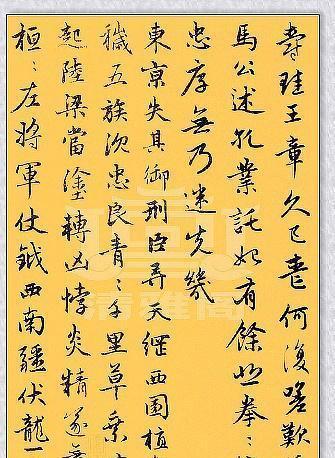 爵珪王章久已喪何復嗟歎
馬公述孔業託始有餘悲拳:
忠厚無乃迷先幾
東京失其御刑臣弄天綱西園植
穢五族沉忠良青:千里草乘
起陸梁當塗轉凶悖炎精遂無
桓:左將軍仗鉞西南疆伏龍一
清雅阁